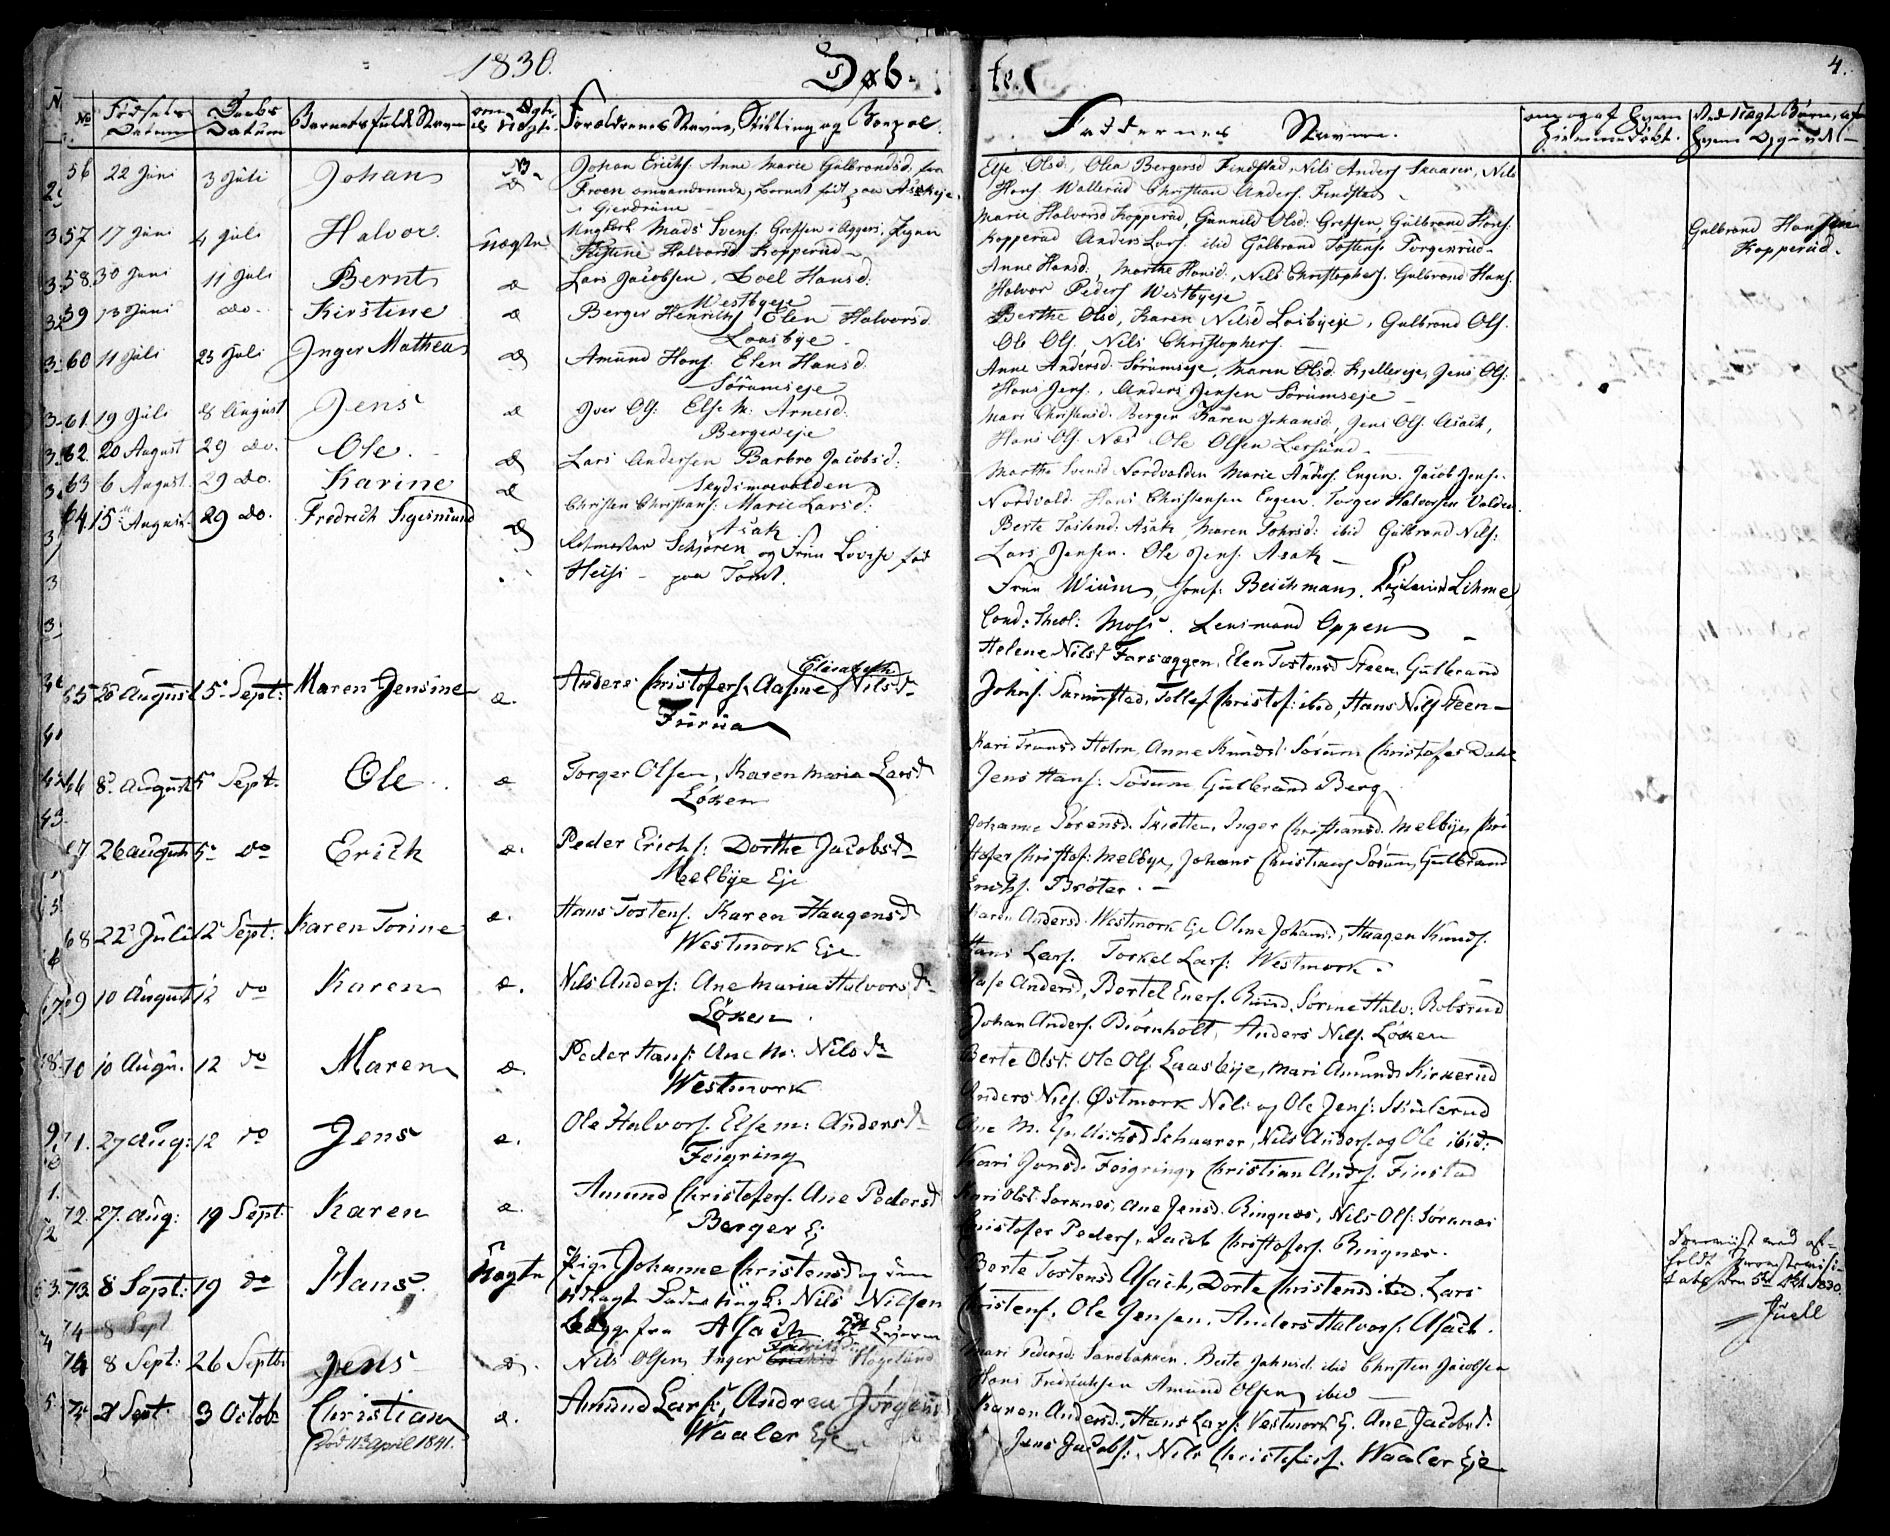 1830.
Døb-
te.
4.
No Fødsels Datum Daabs Datum Barnets fulde Navn om Ægte el. Uægte Forældrenes Navne, Stilling og Bopæl.
Faddernes Navne.
56 22 Juni 3 Juli Johan
Johan Erichs: Anne Marie Gulbrandsd. fra
Froen omvandrende, Barnet født paa Asakeje
i Gierdrum
Else Olsd., Olea Bergersd Findstad, Nils Anders Skaarer, Nils
Hans. Wallerud Christian Anders. Findstad
57 17 Juni 4 Juli Halvor Uægte
Ungkarl Mads Svens. Grefsen i Agger, Pigen
Kistine Halvorsd. Kopperud
Marie Halvorsd Kopperud, Gunnild Olsd. Grefsen, Gulbrand Hans.
Kopperud Anders Lars. ibid Gulbrand Tostens. Torgenrud
Gulbrand Hansen
Kopperud.
58 30 Juni 11 Juli Bernt Æ
Lars Jacobsen, Boel Hansd.
Westbyeje
Anne Hansd., Marthe Hansd., Nils Christophers. Gulbrand Hans.
Halvor Peders Westbyeje
59 13 Juni do. Kirstine Æ
Berger Henrichs Elen Halvorsd.
Laasbye
Berthe Olsd, Karen Nilsd Losbyeje, Gulbrand Ols.
Ole Ols. Nils Christophers.
60 11 Juli 25 Juli Inger Mathea Æ
Amund Hans. Elen Hansd.
Sørumseje
Anne Andersd. Sørumseje, Maren Olsd. Kjellereje, Jens Ols.
Hans Jens., Anders Jensen Sørumseje
61. 19 Juli 8 August Jens Æ
Iver Ols. Else M. Arnesd.
Bergereje
Mari Christensd. Berger Karen Johansd, Jens Ols. Asach,
Hans Ols. Næs Ole Olsen Lersund
62. 20 August 29 do. Ole. Æ
Lars Andersen Barbro Jacobsd.
Skydsmoevolden
Marthe Svensd Nordvolden Marie Anders. Engen. Jacob Jens.
Nordvold. Hans Christensen Engen. Torger Halvorsen Volden.
63 6 August. 29 do. Karine Æ
Christen Christians: Marie Larsd.
Asak
Berte Tostend. Asak, Maren Tohrsd: ibid Gulbrand Nils:
Lars Jensen. Ole Jens. Asak
64. 15 August. 29 do. Fredrich Sigismund Æ
Ritmester Schjøren og Frue Lovise fød
Heisi - paa Tomt.
Frue Wium, Beichman,
Cand: Theol: Moss. Lensmand Oppen
65 20 August 5 Sept: Maren Jensine Æ.
Anders Christofers. Aasine Elisabeth Nilsd
Furua
Helene Nilsd Farsæggen, Elen Tostensd Steen, Gulbrand
Tollef Christof: ibid, Hans Nils Steen
66 8 August 5 Sept. Ole. Æ
Torger Olsen, Karen Maria Larsd
Løken
Kari Holm, Anne Knudsd. Sørum Christofer Dahl
Jens Hans: Sørum Gulbrand Berg
67 26 August 5 do Erich Æ.
Peder Erichs: Dorthe Jacobsd
Melbye Eje
Johanne Sørensd. Skjetten, Inger Christiansd. Melbye, Chri-
stofer Christof: Melbye, Johans Christians Sørum, Gulbrand
Erichs. Brøter.
68 22 Juli 12 Sept: Karen Torine Æ.
Hans Tostens. Karen Haagensd
Westmork Eje
Karen Andersd. Westmork Eje Oline Johansd, Haagen Knuds.
Hans Lars. Torkel Lars: Westmork.
69 10 August 12 do Karen Æ.
Nils Anders: Ane Maria Halvorsd
Løken
Aase Andersd, Bertel Eners. Sørine Halv: Robsrud
Johan Anders. Biørnholt, Anders Nils. Løken
70 10 Augu. 12 do Maren Æ.
Peder Hans: Ane M: Nilsd
Westmork
Berte Olsd. Ole Ols. Laasbye, Mari Amunds Kirkerud
Anders Nils. Østmork Nils og Ole Jens: Skiulerud
71. 27 Aug: 12 do Jens Æ.
Ole Halvors. Else M: Andersd
Feigring
Ane M. Gulbrichsd Schaarer, Nils Anders. og Ole ibid:
Kari Jonsd. Feigring, Christian Anders. Finstad
72. 27. Aug: 19 Sept: Karen Æ.
Amund Christofers. Ane Pedersd
Berger Ej
Kari Olsd. Sørknæs, Ane Jensd. Ringnæs, Nils Ols: Sørknæs
Christofer Peders, Jacob Christofers. Ringnæs.
73. 8 Sept: 19 do Hans. Uægte
Pige Johanne Christensd og som
Udlagt Fader Ungk: Nils Nilsen
begge fra Asach
Berte Tostensd Asach, Dorte Christensd ibid. Lars
Christens. Ole Jensen. Anders Halvors. Asach.
5te Okt 1830.
Juell
74 8 Sept
74 8 Sept: 26 Septbr Jens Æ.
Nils Olsen Inger Fredriksd. Hogelund
Mari Pedersd. Sandbakken. Berte Johnsd. ibid Christen Jacobsen
Hans Fredriksen Amund Olsen ibid
75 21 Sept. 3 Octobr Christian Æ.
Død 11 April 1841.
Amund Lars:, Andrea Jørgensd
Waaler Eje
Karen Andersd., Hans Lars: Vestmork E. Ane Jacobsd.
Jens Jacobs:, Nils Christofers. Waaler Eje